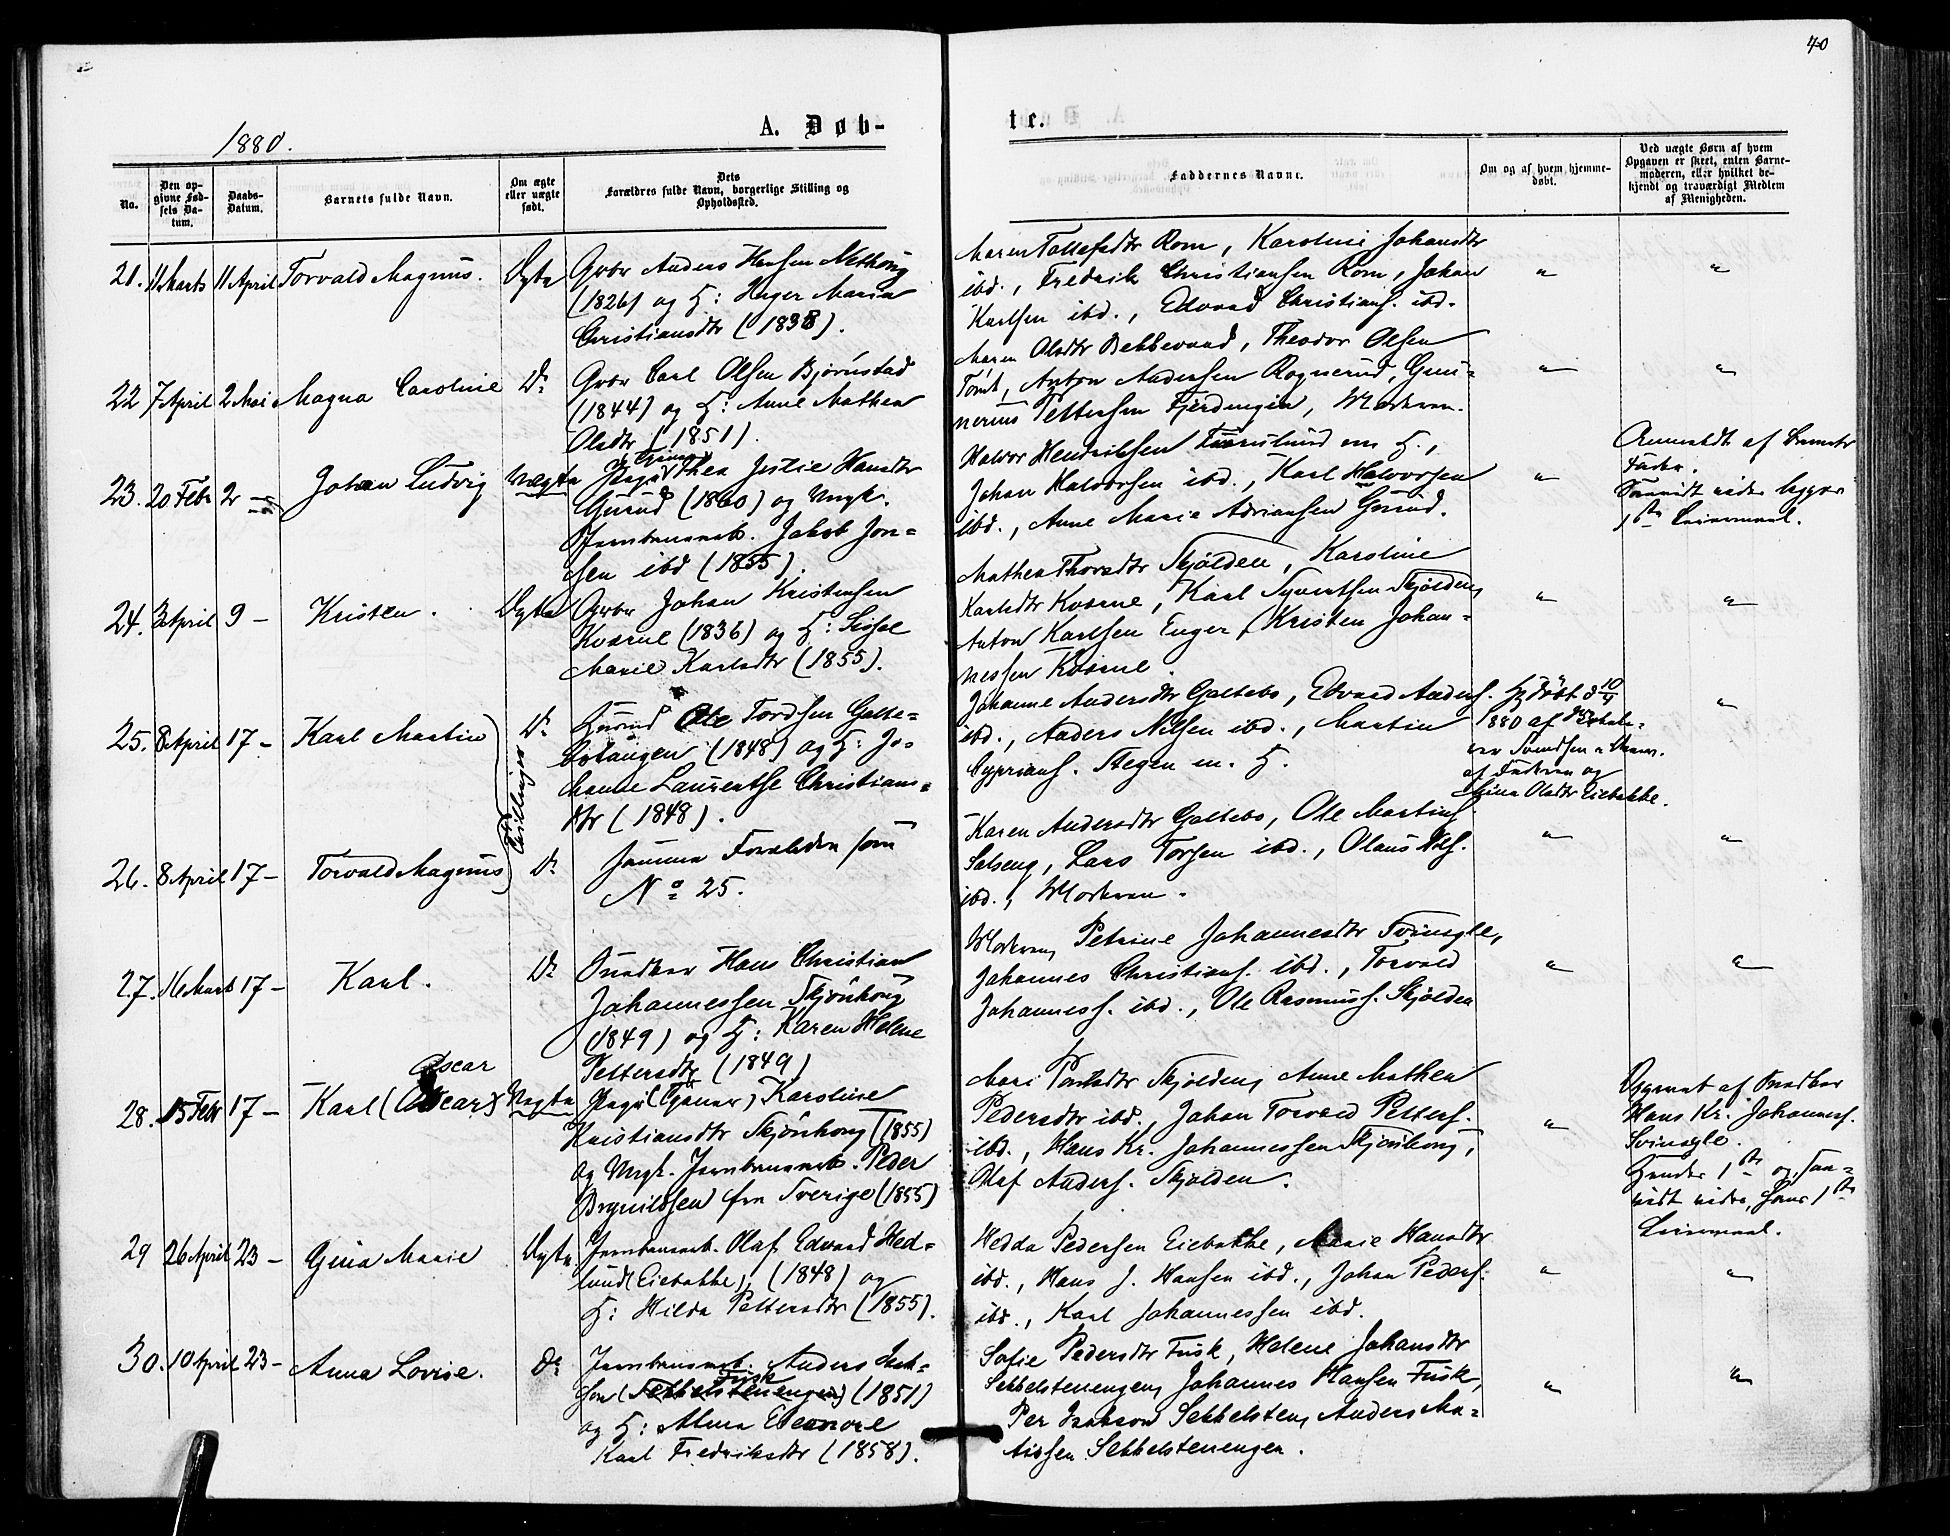 40
1880.
A. Døb-
te.
No.
Den op-
givne Fød-
sels Da-
tum.
Daabs-
Datum.
Barnets fulde Navn.
Om ægte
eller uægte
født.
Dets
Forældres fulde Navn, borgerlige Stilling og
Opholdssted.
Faddernes Navne.
Om og af hvem hjemme-
døbt.
Ved uægte Børn af hvem
Opgaven er skeet, enten Barne-
moderen, eller hvilket be-
kjendt og troværdigt Medlem
af Menigheden.
21. 11 Marts 11 April Torvald Magnus. Ægte
Grbr Anders Hansen
(1826) og H: Inger Maria
Christiansdtr (1838).
Maren Tollefsdtr Rom, Karoline Johansdtr
ibd., Fredrik Christiansen Rom, Johan
Karlsen ibd., Edvard Christians. ibd.
" "
22 7 April 2 Mai Magna Caroline Do
Grbr Carl Olsen Bjørnstad
(1844) og H: Anne Mathea
Olsdtr (1851).
Maren Olsdtr Bekkevard, Theodor Olsen
Tomt, Anton Andersen Rognerud, Gun-
nerius Pettersen Fjerdingen, Moderen.
" "
23. 20 Febr 2 - Johan Ludvig Uægte
Pige Thea Justie Hansdtr
Gurud (1860) og Ungk.
Jernbanearb. Jakob Jon-
sen ibd (1855).
Halvor Hendriksen m H.,
Johan Halvorsen ibd., Karl Halvorsen
ibd., Anne Marie Adriansen Gurud.
"
Anmeldt af Barnets
Fader.
begges
1ste Leiermaal.
24. 3 April 9 - Kristen. Ægte
Grbr Johan Kristensen
Kværne (1836) og H: Sissel
Marie Karlsdtr (1855).
Mathea Thorsdtr Skjølden, Karoline
Karlsdtr Kværne, Karl Syvertsen Skjølden,
Anton Karlsen Enger, Kristen Johan-
nessen Kværne.
" "
25. 8 April 17 - Karl Martin Do
Tvillinger
Ole Tordsen Galte-
botangen (1848) og H: Jo-
hanne Laurentse Christians-
dtr (1848).
Johanne Andersdtr Galtebo, Edvard Anders.
ibd., Anders Nilsen ibd., Martin
Cyprians. Stegen m. H.
Hj.døbt d 10/4
1880 af
Svendsen
af Faderen og
Mina Olsdtr Eiebakke.
"
26. 8 April 17 - Torvald Magnus Do
Samme Forældre som
No 25.
Karen Andersdtr Galtebo, Ole Martins.
Salseng, Lars Torsen ibd., Olaus Nils.
ibd., Moderen.
" "
27. 16 Mart 17 - Karl. Do
Snedker Hans Christian
Johannessen Skjønhong
(1849) og H: Karen Helene
Pettersdtr (1849)
Moderen, Petrine Johannesdtr Svinsgle,
Johannes Christians. ibd., Torvald
Johanness. ibd., Ole Rasmuss. Skjølden
" "
28. 15 Febr 17 - Karl (Oscar) Uægte
Oscar
Pige (Tjener) Karoline
Kristiansdtr Skjønhong (1855)
og Ungk. Jernbanearb. Peder
Brynildsen fra Sverige (1855)
Mari Pedersdtr Skjølden, Anne Mathea
Pedersdtr ibd., Johan Torvald Petters.
ibd., Hans Kr. Johannessen Skjønhong,
Olaf Anders. Skjølden.
"
Opgivet af Snedker
Hans Kr. Johanness.
Svinsgle.
Hendes 1ste og saa-
vidt vides, hans 1ste
Leiermaal.
29 26 April 23 - Gina Marie Ægte
Jernbanearb. Olaf Edvard Hed-
lund (Eiebakke), (1848) og
H: Hilda Pettersdtr (1855).
Hedda Pedersen Eiebakke, Marie Hansdtr
ibd., Hans J. Hansen ibd., Johan Peders.
ibd., Karl Johannessen ibd.
" "
30. 10 April 23 - Anna Lovise. Do
Jernbanearb. Anders Isak-
Fusk
sen (Sekkelstenengen) (1851)
og H: Alma Eleonore
Karl Fredriksdtr (1858).
Sofie Pedersdtr Fusk, Helene Johansdtr
Sekkelstenengen, Johannes Hansen Fusk,
Per Isakson Sekkelsten, Anders Ma-
tissen Sekkelstenengen.
" "